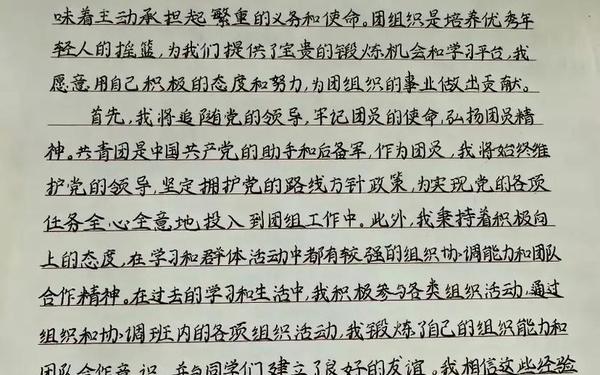 味着主动承担起繁重的义务和使命。团组织是培养优秀年
轻人的摇篮，为我们提供了宝贵的锻炼机会和学习平台，我
愿意用自己积极的态度和努力，为团组织的事业做出贡献。
首先，我将追随党的领导，牢记团员的使命，弘扬团员精
神。共青团是中国共产党的助手和后备军，作为团员，我将始终维
护党的领导，坚定拥护党的路线方针政策，为实现党的各项
任务全心全意地投入到团组工作中。此外，我秉持着积极向
上的态度，在学习和群体活动中都有较强的组织协调能力和团队
合作精神。在过去的学习和生活中，我积极参与各类组织活动，通过
组织和协调班内的各项组织活动，我锻炼了自己的组织能力和
团队合作意识，并与同学们建立了良好的友谊。我相信这些经验